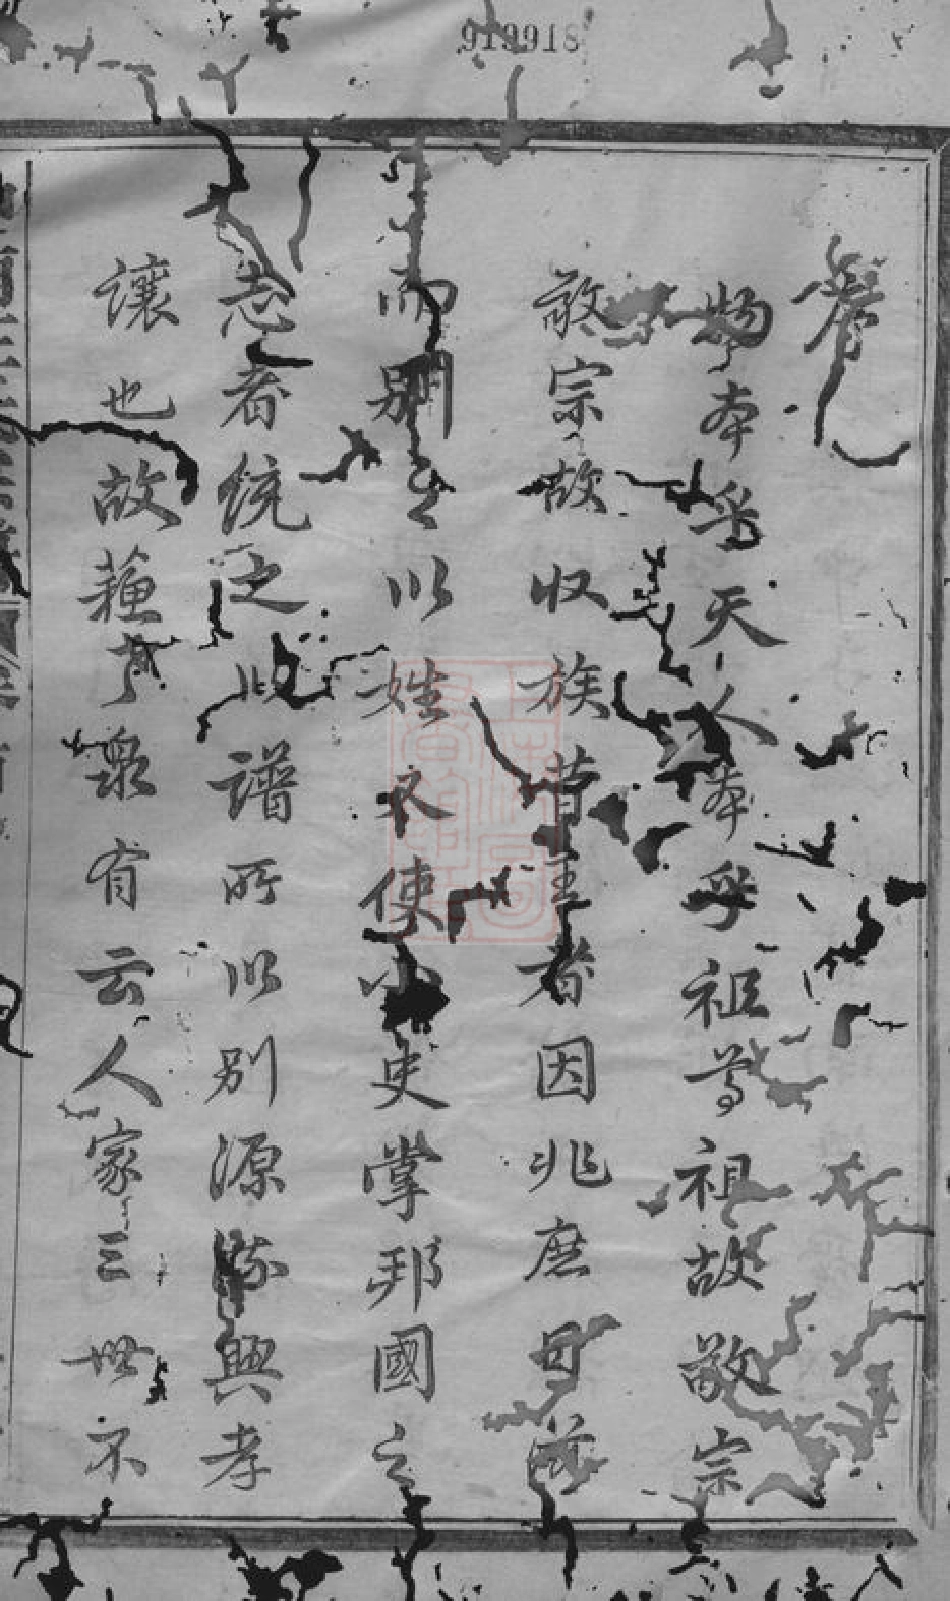 919918
物本乎天人本乎祖尊祖故敬宗
敬宗故收族昔王者因兆庶
而別之以姓又使小史掌邦國之
志者統之此譜所以別源流興孝
讓也故蘓泉有云人家三世不